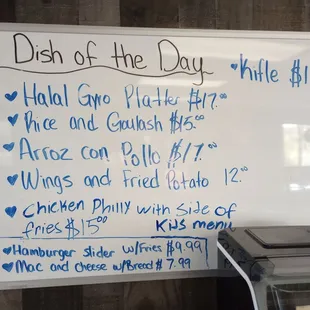 Dish of the Day
• Kifle $1
♥ Halal Gyro Platter $17.00
♥ Rice and Goulash $15.00
♥ Arroz con Pollo $17.00
♥ Wings and Fried Potato 12.00
♥ Chicken Philly with Side of
fries $15.00
Kids menu
♥ Hamburger Slider w/Fries $9.99
♥ Mac and cheese w/Bread $7.99